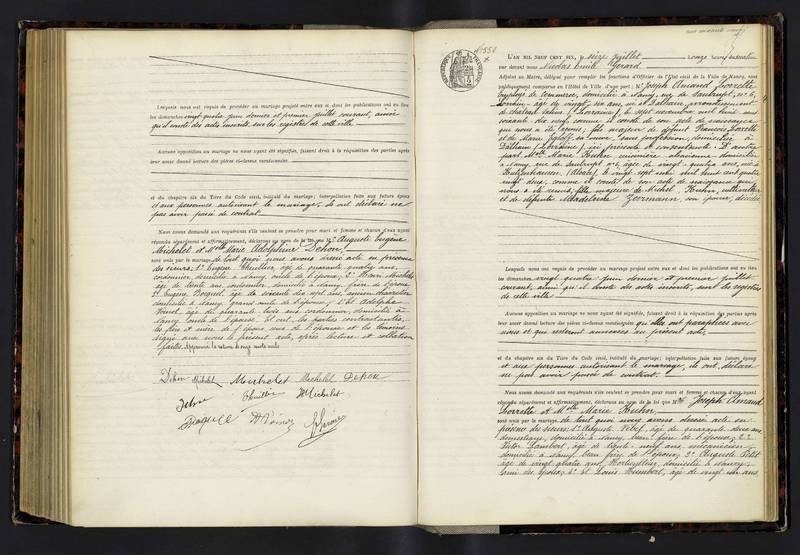 Lesquels nous ont requis de procéder au mariage projeté entre eux et dont les publications ont eu lieu
les dimanches vingt quatre juin dernier et premier juillet courant, ainsi
qu'il conste des actes inscrits sur les registres de cette ville
Aucune opposition au mariage ne nous ayant été signifiée, faisant droit à la réquisition des parties après
leur avoir donné lecture des pièces ci-dessus mentionnées
et du chapitre six du Titre du Code civil, intitulé du mariage; interpellation faite aux futurs époux
et aux personnes autorisant le mariage, ils ont déclaré ne
pas avoir passé de contrat
Nous avons demandé aux requérants s'ils veulent se prendre pour mari et femme et chacun d'eux ayant
répondu séparément et affirmativement, déclarons au nom de la loi que Mr Auguste Eugène
Michelet et Melle Marie Adolphine Dehon
sont unis par le mariage de tout quoi nous avons dressé acte en présence
des sieurs: 1° Eugène Thuillier, âgé de quarante quatre ans,
cordonnier, domicilié à Nancy, oncle de l'époux; 2° Michelet
âgé de trente ans, cordonnier, domicilié à Nancy, frère de l'époux
3° Eugène âgé de soixante dix sept ans, ancien charretier
domicilié à Nancy, grand oncle de l'épouse; 4° Adolphe
âgé de quarante trois ans cordonnier, domicilié à
Nancy oncle de l'épouse. Et ont, les parties contractantes,
les père et mère de l'époux ceux de l'épouse et les témoins
signé avec nous le présent acte, après lecture et collation
faites.
Dehon Michelet Michelet Michelet Dehon
Dehon Thuillier Michelet
N°358
L'AN MIL NEUF CENT SIX, le seize Juillet à onze heures
par devant nous Nicolas Emile Gérard
Adjoint au Maire, délégué pour remplir les fonctions d'Officier de l'État civil de la Ville de Nancy, sont
publiquement comparus en l'Hôtel de Ville d'une part: Mr Joseph Amand Lorrette
employé de commerce, domicilié à Nancy, rue de Saintrupt, n° 6,
âgé de vingt six ans, né à Dalhain, arrondissement
de Château Salins (Lorraine), le sept novembre mil huit cent
soixante dix neuf comme il conste de son acte de naissance
qui nous a été remis; fils majeur de défunt François Lorrette
et de Marie sa veuve, sans profession, domiciliée à
Dalhain (Lorraine) ici présente et consentante. D'autre
part, Melle Marie Kuhn cuisinière domiciliée
à Nancy, rue de Saintrupt n°6 âgée de vingt quatre ans, née à
Kutzenhausen (Alsace), le vingt sept août mil huit cent quatre
vingt deux, comme il conste de son acte de naissance qui
nous a été remis; fille majeure de Michel Kuhn, cultivateur
et de défunte Madeleine Zermann, son épouse, décédée
Lesquels nous ont requis de procéder au mariage projeté entre eux et dont les publications ont eu lieu
les dimanches vingt quatre juin dernier et premier juillet
courant, ainsi qu'il conste des actes inscrits, sur les registres
de cette ville
Aucune opposition au mariage ne nous ayant été signifiée, faisant droit à la réquisition des parties après
leur avoir donné lecture des pièces ci-dessus mentionnées qu'elles ont paraphées avec
nous et qui resteront annexées au présent acte
et du chapitre six du Titre du Code civil, intitulé du mariage; interpellation faite aux futurs époux
et aux personnes autorisant le mariage, ils ont, déclaré
ne pas avoir passé de contrat.
Nous avons demandé aux requérants s'ils veulent se prendre pour mari et femme et chacun d'eux ayant
répondu séparément et affirmativement, déclarons au nom de la loi que Mr Joseph Amand
Lorrette et Melle Marie Kuhn
sont unis par le mariage, de tout quoi nous avons dressé acte en
présence des sieurs: 1° Auguste âgé de quarante deux ans,
domestique, domicilié à Nancy, beau frère de l'époux; 2°
Victor Lambert, âgé de trente neuf ans, mécanicien
domicilié à Nancy, beau frère de l'époux; 3° Auguste Petit
âgé de vingt quatre ans, domicilié à Nancy,
ami des époux; 4° et Louis Humbert, âgé de vingt six ans,